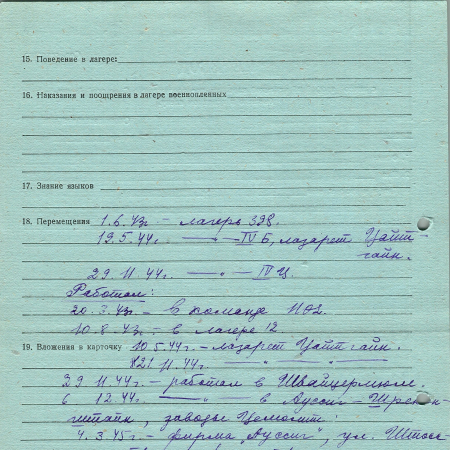 15. Поведение в лагере:
16. Наказания и поощрения в лагере военнопленных
17. Знание языков
18. Перемещения 1.6.43г. – лагерь 398.
19.5.44г. —„— IV Б, лазарет Цайт
гайн.
29.11.44г. —„— IV Ц
Работал:
20.3.43г. – в команде 1102.
10.8.43г. – в лагере 12.
19. Вложения в карточку 10.5.44г. – лазарет Цайтгайн.
11.44г. —„— —„—
29.11.44г. – работал в Швайцермюле.
6 12.44г. —„— в Ауссиг – Шрекен-
штайн, заводы
4.3.45г. – фирма „Ауссиг", ул.